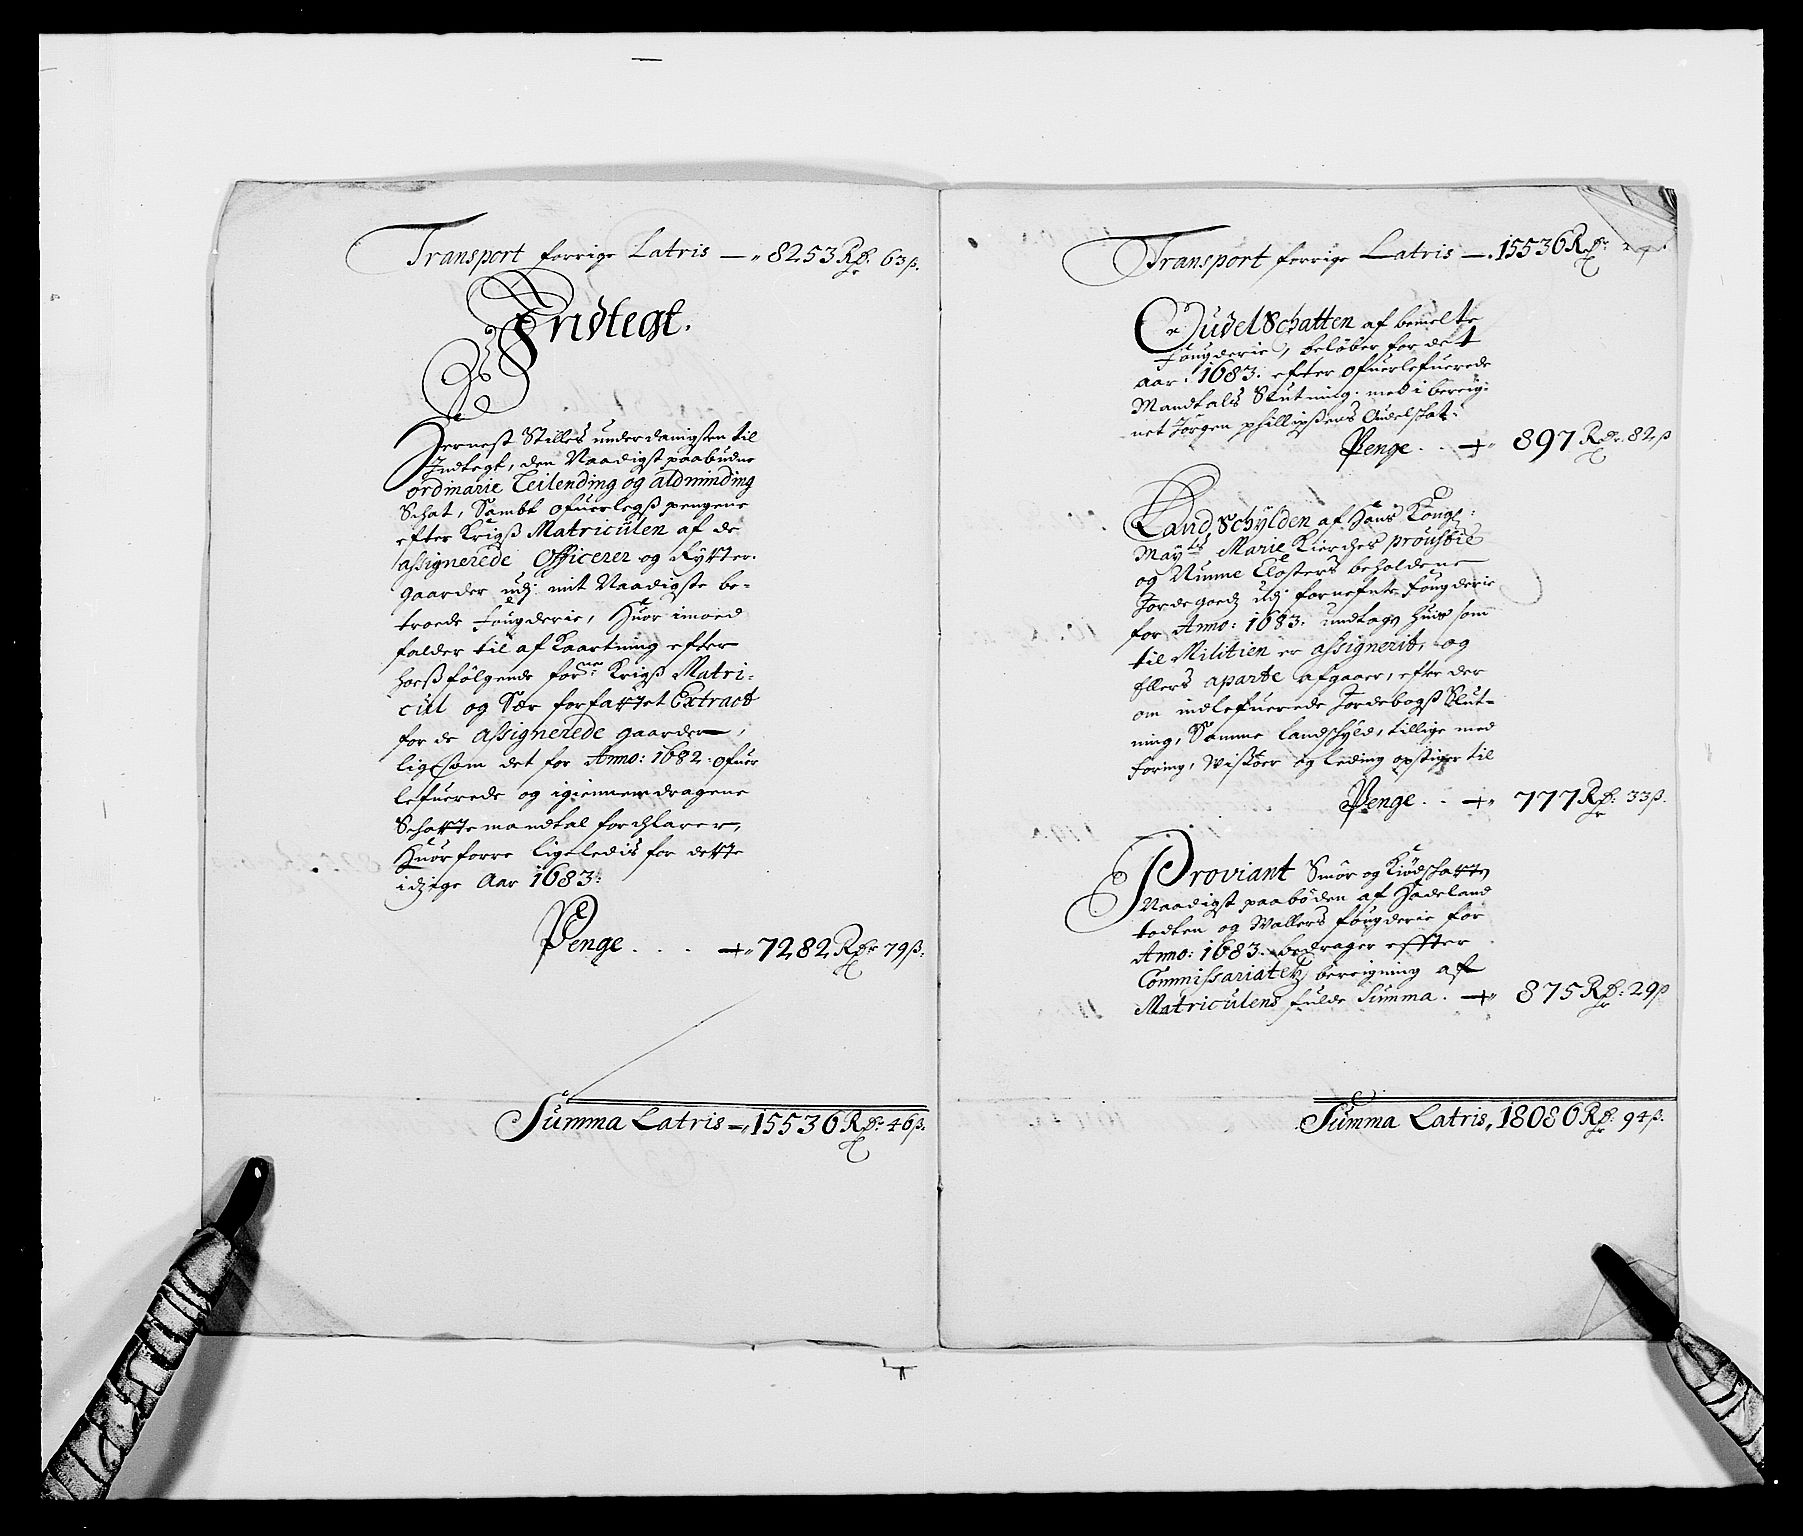 Transport forrige Latris — 8253 Rdr: 63 ß.
Indtegt.
Hernest Stilles underdanigsten til
Indtegt, den Naadigst paabudne
ordinarie Leilending og aldminding
Schat, Sambt ofuerlegß pengene
efter Krigß Matriculen af de
assignerede Officerer og Rytter-
gaarder udj mit Naadigste be-
troede fougderie, Huor imoed
falder til af Kaartning efter
hosßfölgende for.ne Krigß Matri-
cul og Sær forfattet Extract
for de assignerede gaarder,
ligesom det for Anno: 1682. ofuer
lefuerede og igiennem dragene
Schatte mandtal forchlarer,
Huorforre ligeledis for dette
idzige Aar 1683.
Penge . . . 7282 Rdr 79 ß.
Summa Latris — 15536 Rdr. 46 ß.
Transport forrige Latris — 15536 Rdr:
Oudel Schatten af bemelte
Fougderie, belöber for det
aar 1683. efter ofuerlefuerede
Mandtals Slutning. med i bereig-
net Jörgen phillipßens Oudelschat.
Penge . . 897 Rdr. 82 ß
Land Schÿlden af Hans Kongl:
Maÿts Marie Kierches proustie
og Nunne Closters beholdene
Jordegoedz udj fornefnte fougderie
for Anno: 1683. undtagen huis som
til Militien er assignerit, og
Ellers aparte afgaaer, efter der
om indlefuerede Jordebogß Slut-
ning, Samme landschyld, tillige med
foring, Wisöer og leding opstiger til
Penge . . 777 Rdr: 33 ß.
Proviant Smör og Kiödschatten
Naadigst paaböden af Hadeland
todten og Wallers fougderie for
Anno: 1683. bedrager effter
Commissariatetz bereigning af
Matriculens fulde Summa. 875 Rdr: 29 ß
Summa Latris, 18086 Rdr: 94 ß.